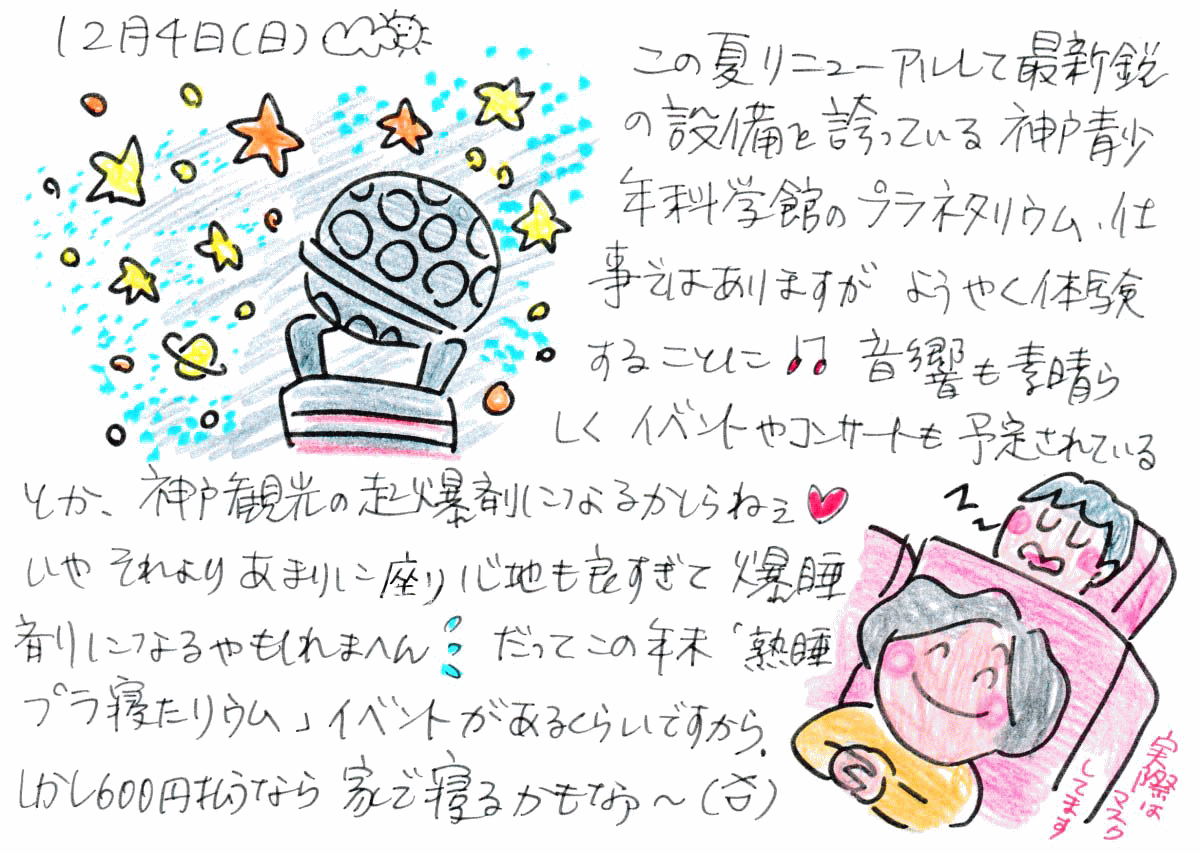 12月4日(日)
この夏リニューアルして最新鋭
の設備を誇っている神戸青少
年科学館のプラネタリウム、仕
事ではありますが ようやく体験
することに 音響も素晴ら
しく イベントやコンサートも予定されている
とか、神戸観光の起爆剤になるかしらねェ
いや それより あまりに座り心地も良すぎて 爆睡
剤になるやもしれまへん だってこの年末「熟睡
プラ寝たリウム」イベントがあるくらいですから。
しかし600円払うなら 家で寝るかもなァ〜(笑)
実際は
マスク
してます